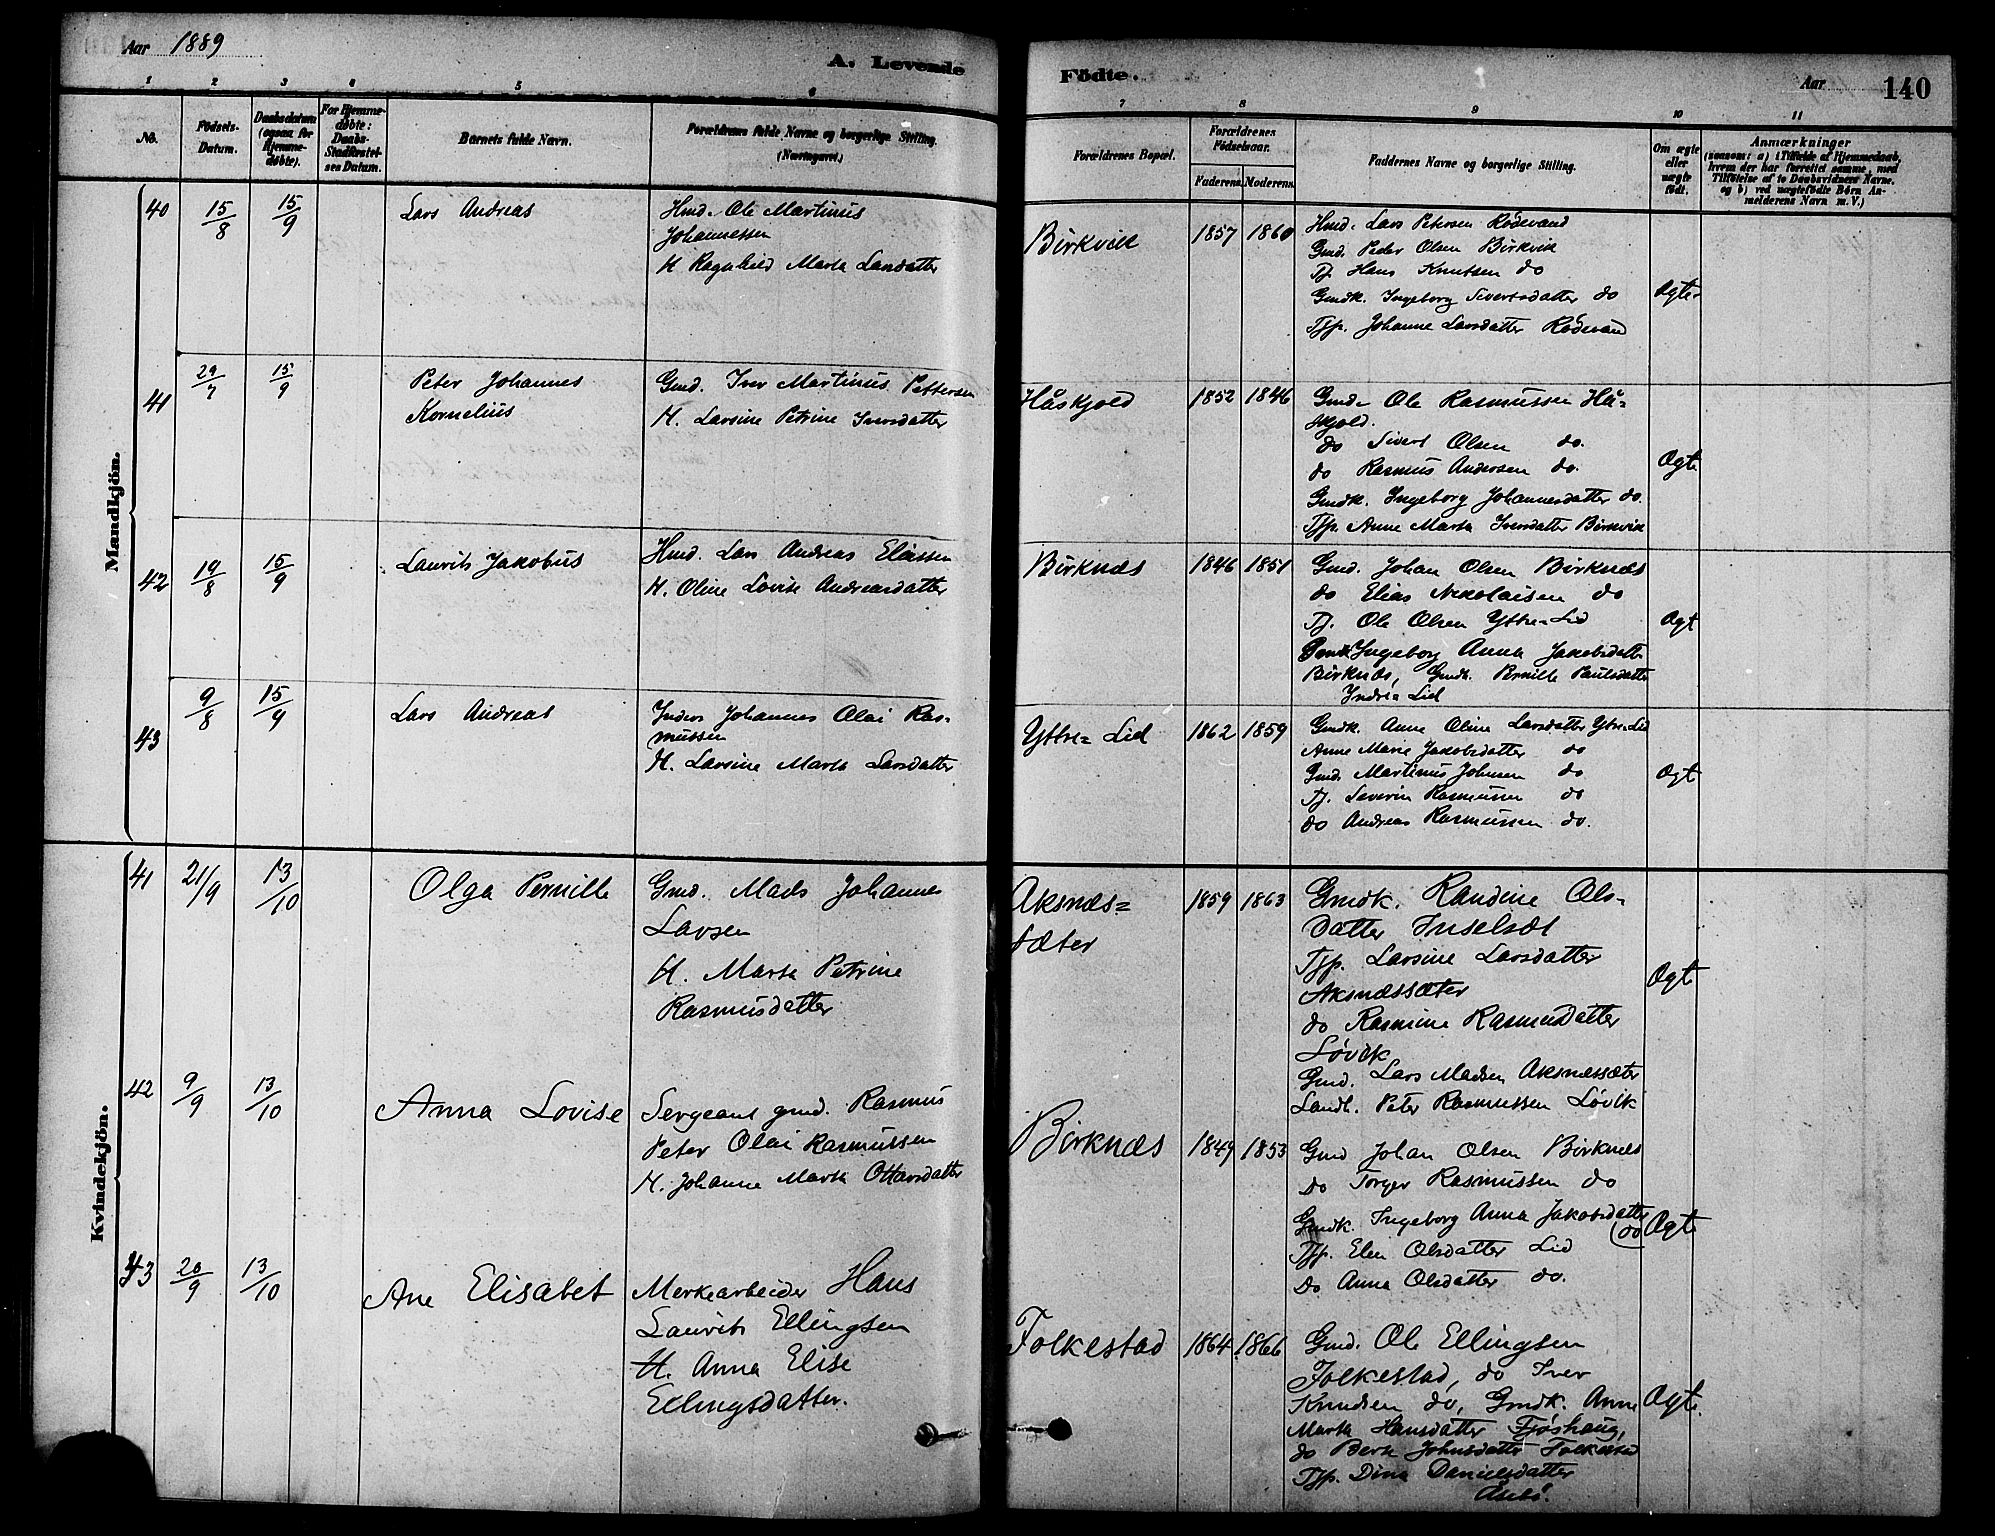 Aar 1889
A. Levende
1 2 3 4 5 6
No.
Födsels-
Datum.
Daabsdatum
(ogsaa for
Hjemme-
døbte).
For Hjemme-
døbte:
Daabs-
Stadfæstel-
ses Datum.
Barnets fulde Navn.
Forældrenes fulde Navne og borgerlige Stilling.
(Næringsvei.)
Mandkjön.
40 15/8 15/9 Lars Andreas Hmd. Ole Martinus
Johannessen
H Ragnhild Marta Larsdatter
41 29/7 15/9 Peter Johannes Gmd. Iver Martinus Pettersen
Kornelius H. Larsine Petrine Iversdatter
42 19/8 15/9 Laurits Jakobus Hmd. Lars Andreas Eliassen
H. Oline Lovise Andreasdatter
43 9/8 15/9 Lars Andreas Inders Johannes Olai Ras-
mussen
H. Larsine Marta Larsdatter
Kvindekjön.
41 21/9 13/10 Olga Pernille Gmd. Mads Johannes
Larsen
H. Marta Petrine
Rasmusdatter
42 9/9 13/10 Anna Lovise Sergeant gmd. Rasmus
Peter Olai Rasmussen
H. Johanne Marta Ottarsdatter
43 20/9 13/10 Ane Elisabet Merkearbeider Hans
Laurits Ellingsen
H. Anna Elise
Ellingsdatter.
Födte.
Aar 140
7 8 9 10 11
Forældrenes Bopæl.
Forældrenes
Födselsaar.
Faderens. Moderens.
Faddernes Navne og borgerlige Stilling.
Om ægte
eller
uægte
födt.
Anmærkninger
(saasom: a) i Tilfælde af Hjemmedaab,
hvem der har forrettet samme, med
Tilföielse af to Daabsvidners Navne.
og b) ved uægtefödte Börn An-
melderens Navn m. V.)
Birkvik 1857 1860 Hmd. Lars Petersen Rødsvand
Gmd. Peder Olsen Birkvik
Tj. Hans Knutsen do
Gmdk. Ingeborg Sivertsdatter do Ægte
Tjp. Johanne Larsdatter Rødsvand
Håskjold 1852 1846 Gmd. Ole Rasmussen Hå-
skjold.
do Sivert Olsen do.
do Rasmus Andersen do. Ægte
Gmdk. Ingeborg Johannesdatter do.
Tjp. Anne Marta Iversdatter Birkvik
Birknæs 1846 1851 Gmd. Johan Olsen Birknæs
do Elias Nikolaisen do
Tj. Ole Olsen Ytre-Lid Ægt
Gmdk. Ingeborg Anna Jakobsdatter
Birknæs, Gmdk. Pernille Paulsdatter
Indre-Lid
Yttre-Lid 1862 1859 Gmdk. Anne Oline Larsdatter Ytre-Lid
Anne Marie Jakobsdatter do
Gmd. Martinus Johnsen do Ægt
Tj. Severin Rasmussen do
do Andreas Rasmussen do.
Aksnæs- 1859 1863 Gmdk. Randine Ols-
sæter datter Inselset
Tjp. Larsine Larsdatter
Aksnæssæter Ægt
do Rasmine Rasmusdatter
Løvik
Gmd. Lars Madsen Aksnæssæter
Landh. Peter Rasmussen Løvik
Birknæs 1849 1853 Gmd Johan Olsen Birknæs
do Torger Rasmussen do
Gmdk. Ingeborg Anna Jakobsdatter do Ægt
Tjp. Elen Olsdatter Lid
do Anna Olsdatter do.
Folkestad 1864 1866 Gmd. Ole Ellingsen
Folkestad, do Iver
Knudsen do, Gmdk. Anne Ægt.
Marta Hansdatter Fjøshaug,
do Berte Johnsdatter Folkestad
Tjp. Dina Danielsdatter
Åsebø.